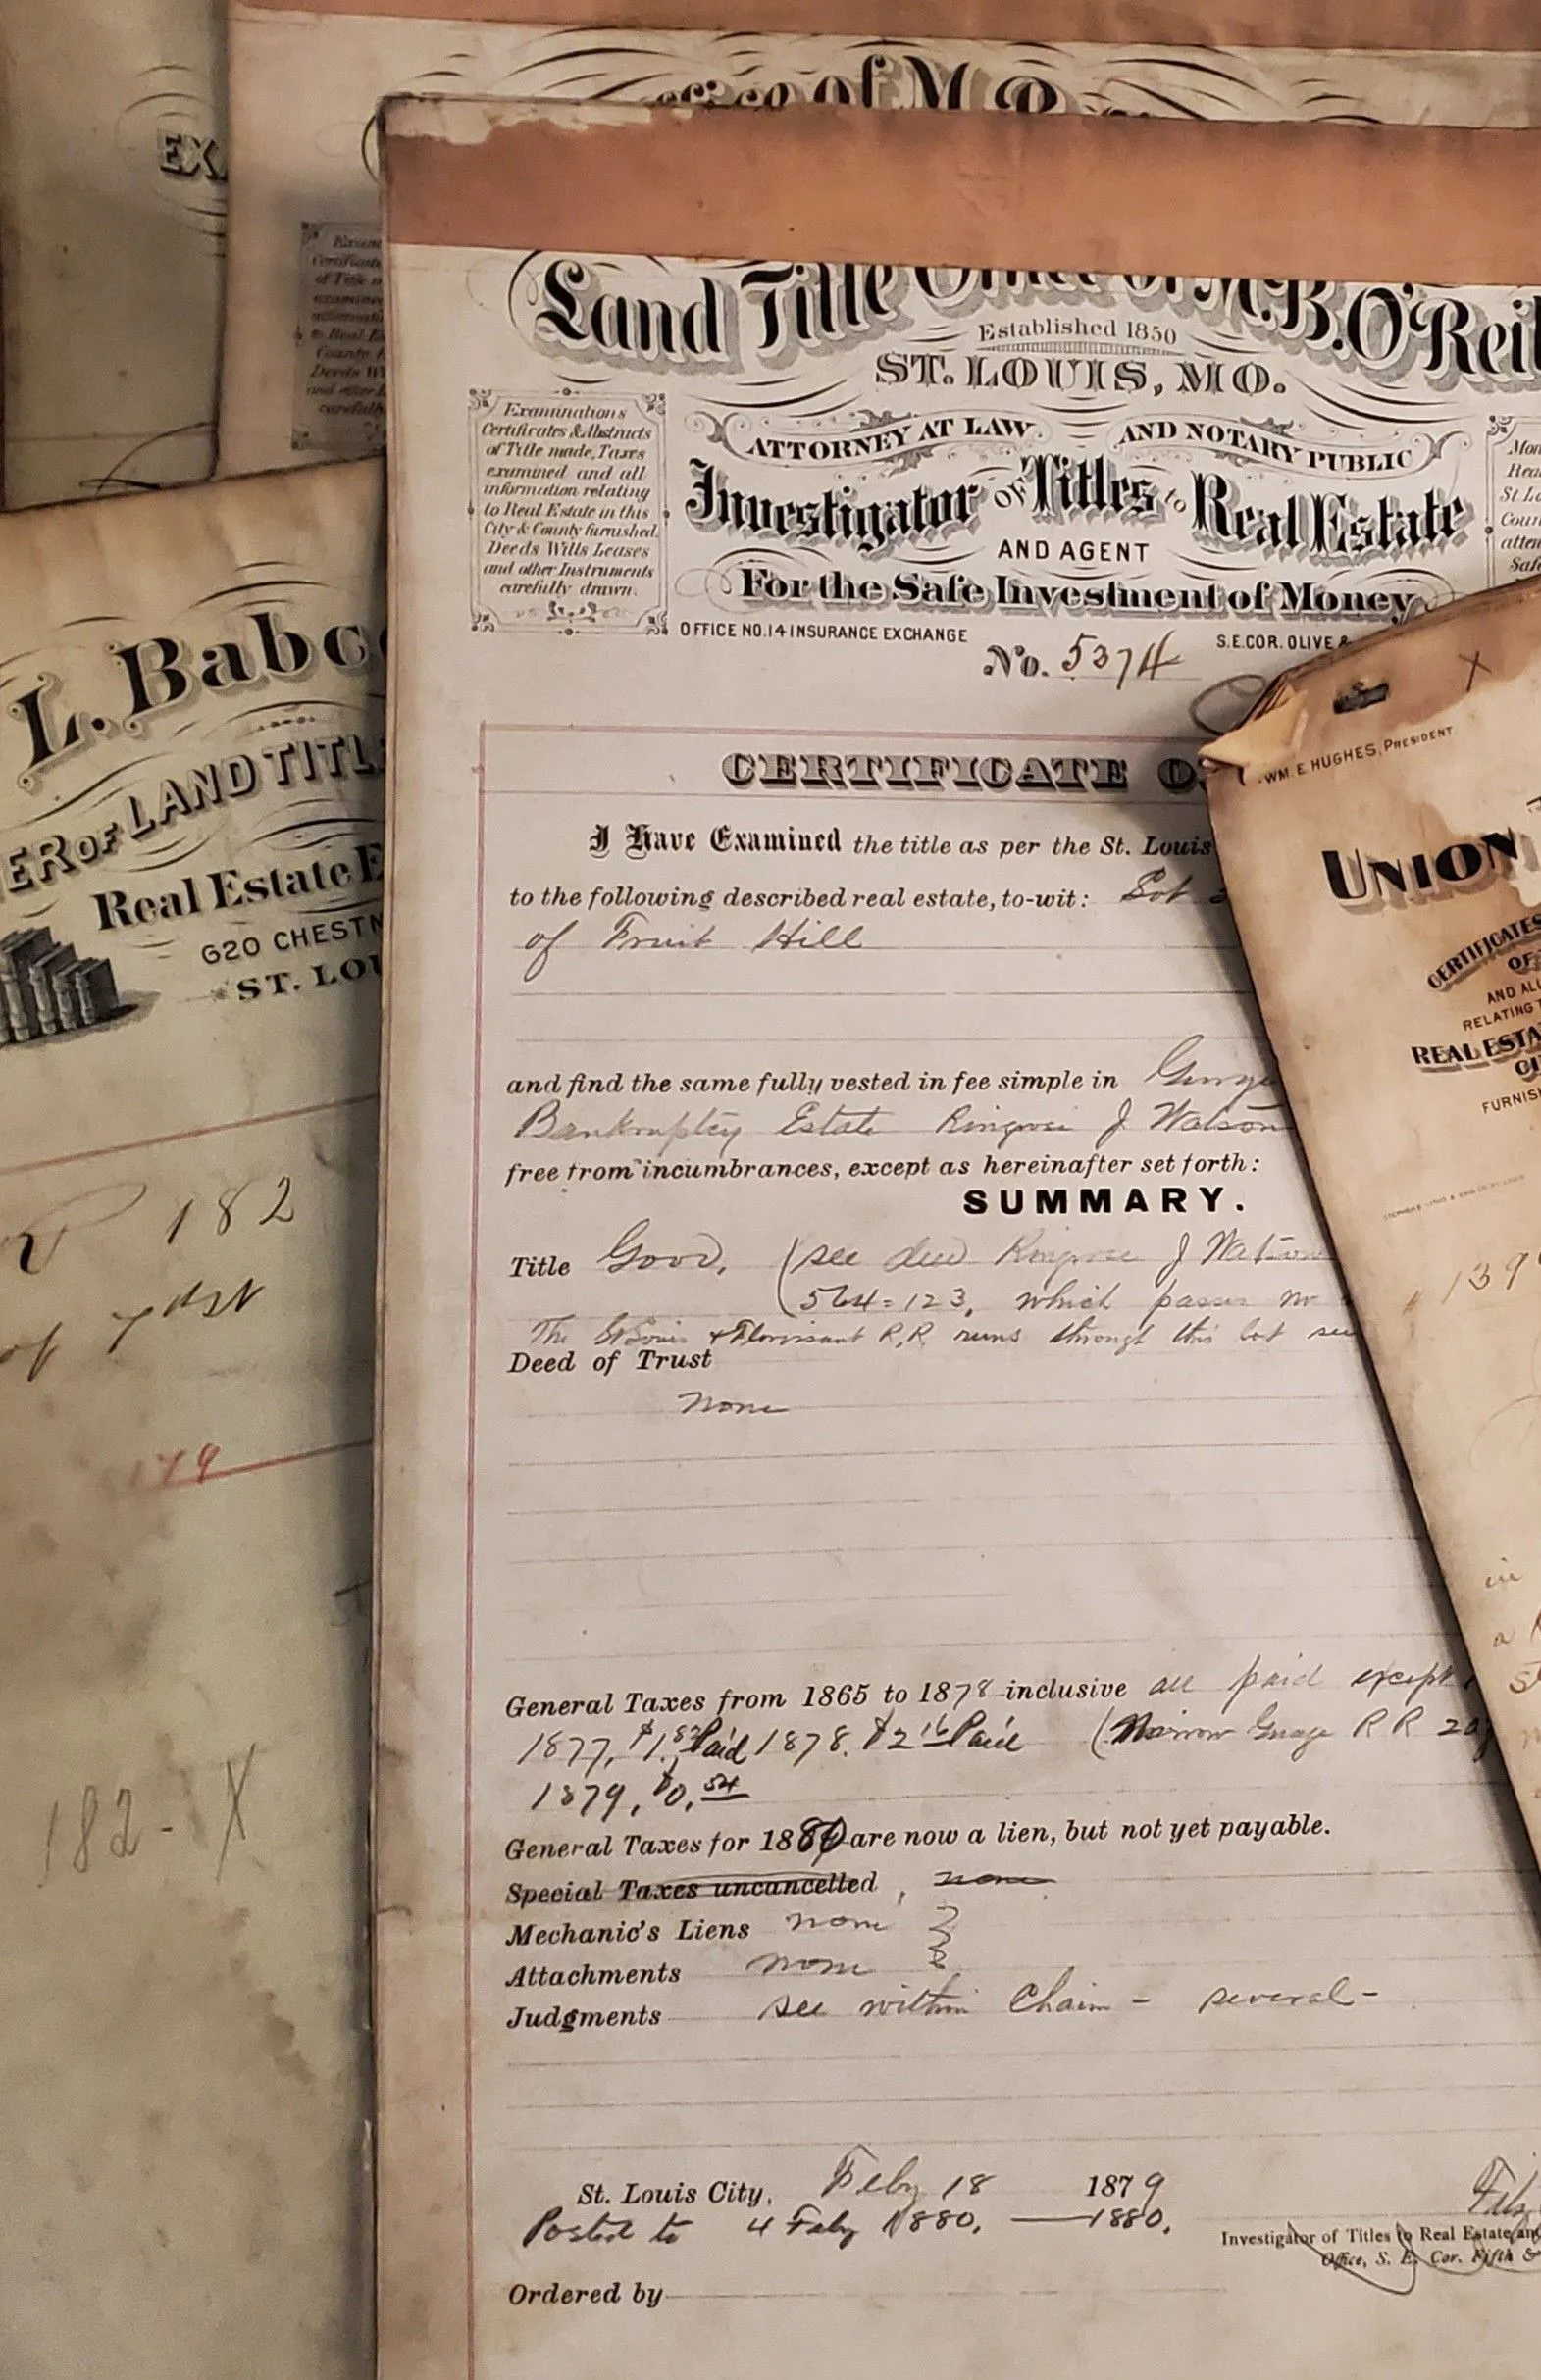 of M. B.
EX
Examin
Certificate
of Title m
examined
information
to Real Es
County f
Deeds Wi
and other I
carefully
Land Title Office of M.B.O'Reil
Established 1850
ST. LOUIS, MO.
Examinations
Certificates & Abstracts
of Title made, Taxes
examined and all
information relating
to Real Estate in this
City & County furnished.
Deeds Wills Leases
and other Instruments
carefully drawn.
ATTORNEY AT LAW AND NOTARY PUBLIC
Investigator OF Titles to Real Estate
AND AGENT
For the Safe Investment of Money
Mon
Rea
St Lo
Coun
atten
Safe
OFFICE NO. 14 INSURANCE EXCHANGE
S.E. COR. OLIVE &
No. 5374
CERTIFICATE O
I Have Examined the title as per the St. Louis
to the following described real estate, to-wit: Lot 3
of Fruit Hill
and find the same fully vested in fee simple in George
Bankruptcy Estate Ringrose J Watson
free from incumbrances, except as hereinafter set forth:
SUMMARY.
Title Good, (see deed Ringrose J Watson
564=123, which passes no
The St Louis & Florissant R.R. runs through this lot see
Deed of Trust
none
General Taxes from 1865 to 1878 inclusive all paid except
1877, $1.82 Paid 1878. $2 16 Paid (Narrow Guage R R 20
1879, $0.54
General Taxes for 1880 are now a lien, but not yet payable.
Special Taxes uncancelled, none
Mechanic's Liens none
Attachments none
Judgments see within Chain - several -
St. Louis City, Feby 18 1879
Posted to 4 Feby 1880. — 1880.
Investigator of Titles to Real Estate an
Office, S. E. Cor. Fifth &
Ordered by
L. Babco
ER OF LAND TITLE
Real Estate E
620 CHESTN
ST. LOU
P 182
of
179
182 - X
X
WM. E. HUGHES, PRESIDENT.
UNION
CERTIFICATES
OF
AND ALL
RELATING T
REAL ESTA
CI
FURNIS
139
in
a